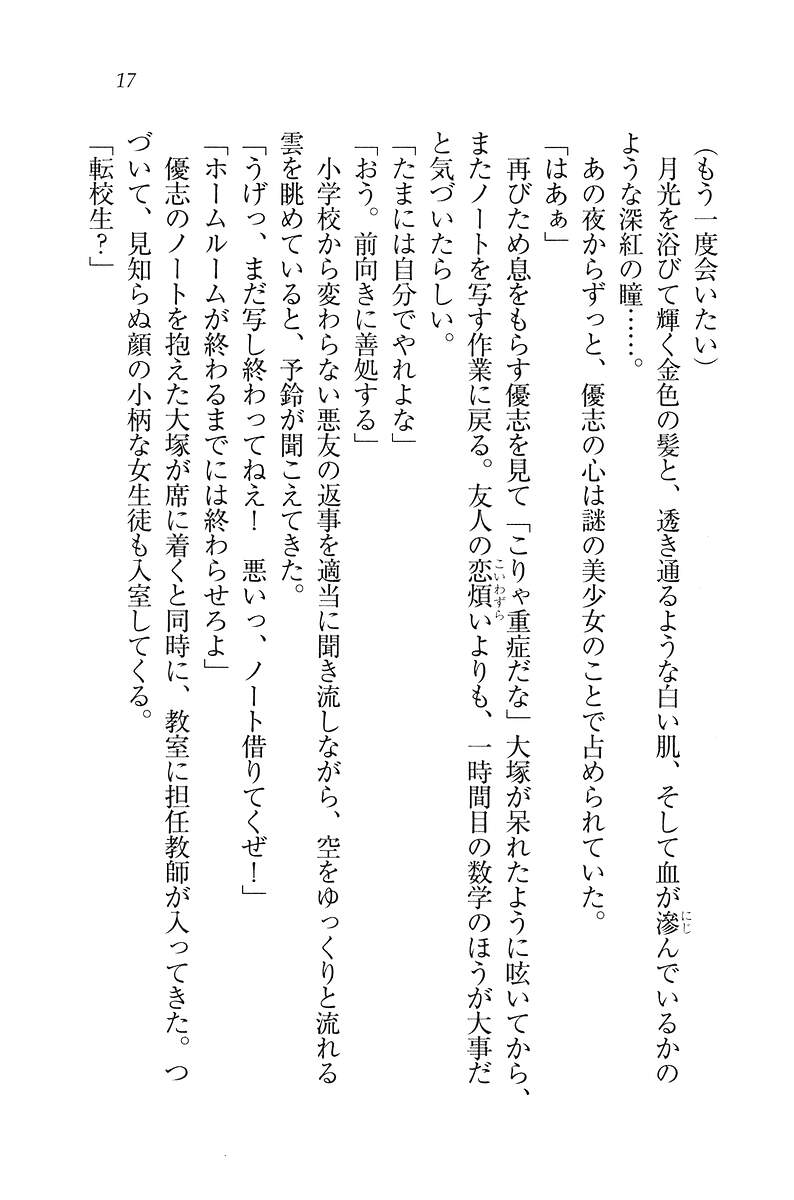 17
(もう一度会いたい)
　月光を浴びて輝く金色の髪と、透き通るような白い肌、そして血が滲んでいるかの
ような深紅の瞳……。
　あの夜からずっと、優志の心は謎の美少女のことで占められていた。
「はあぁ」
　再びため息をもらす優志を見て「こりゃ重症だな」大塚が呆れたように呟いてから、
またノートを写す作業に戻る。友人の恋煩いよりも、一時間目の数学のほうが大事だ
と気づいたらしい。
「たまには自分でやれよな」
「おう。前向きに善処する」
　小学校から変わらない悪友の返事を適当に聞き流しながら、空をゆっくりと流れる
雲を眺めていると、予鈴が聞こえてきた。
「うげっ、まだ写し終わってねえ！　悪いっ、ノート借りてくぜ！」
「ホームルームが終わるまでには終わらせろよ」
　優志のノートを抱えた大塚が席に着くと同時に、教室に担任教師が入ってきた。つ
づいて、見知らぬ顔の小柄な女生徒も入室してくる。
「転校生？」